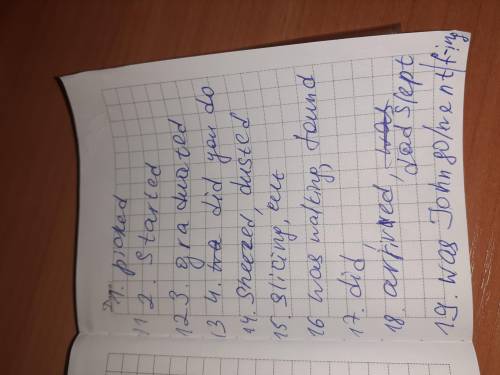 1. picked
11 2. Started
12 3. graduated
13 4. did you do
14. Sneezed, dusted
15. Slicing, cut
16 was walking, found
17. did
18. arrived, was
had slept
19. was John